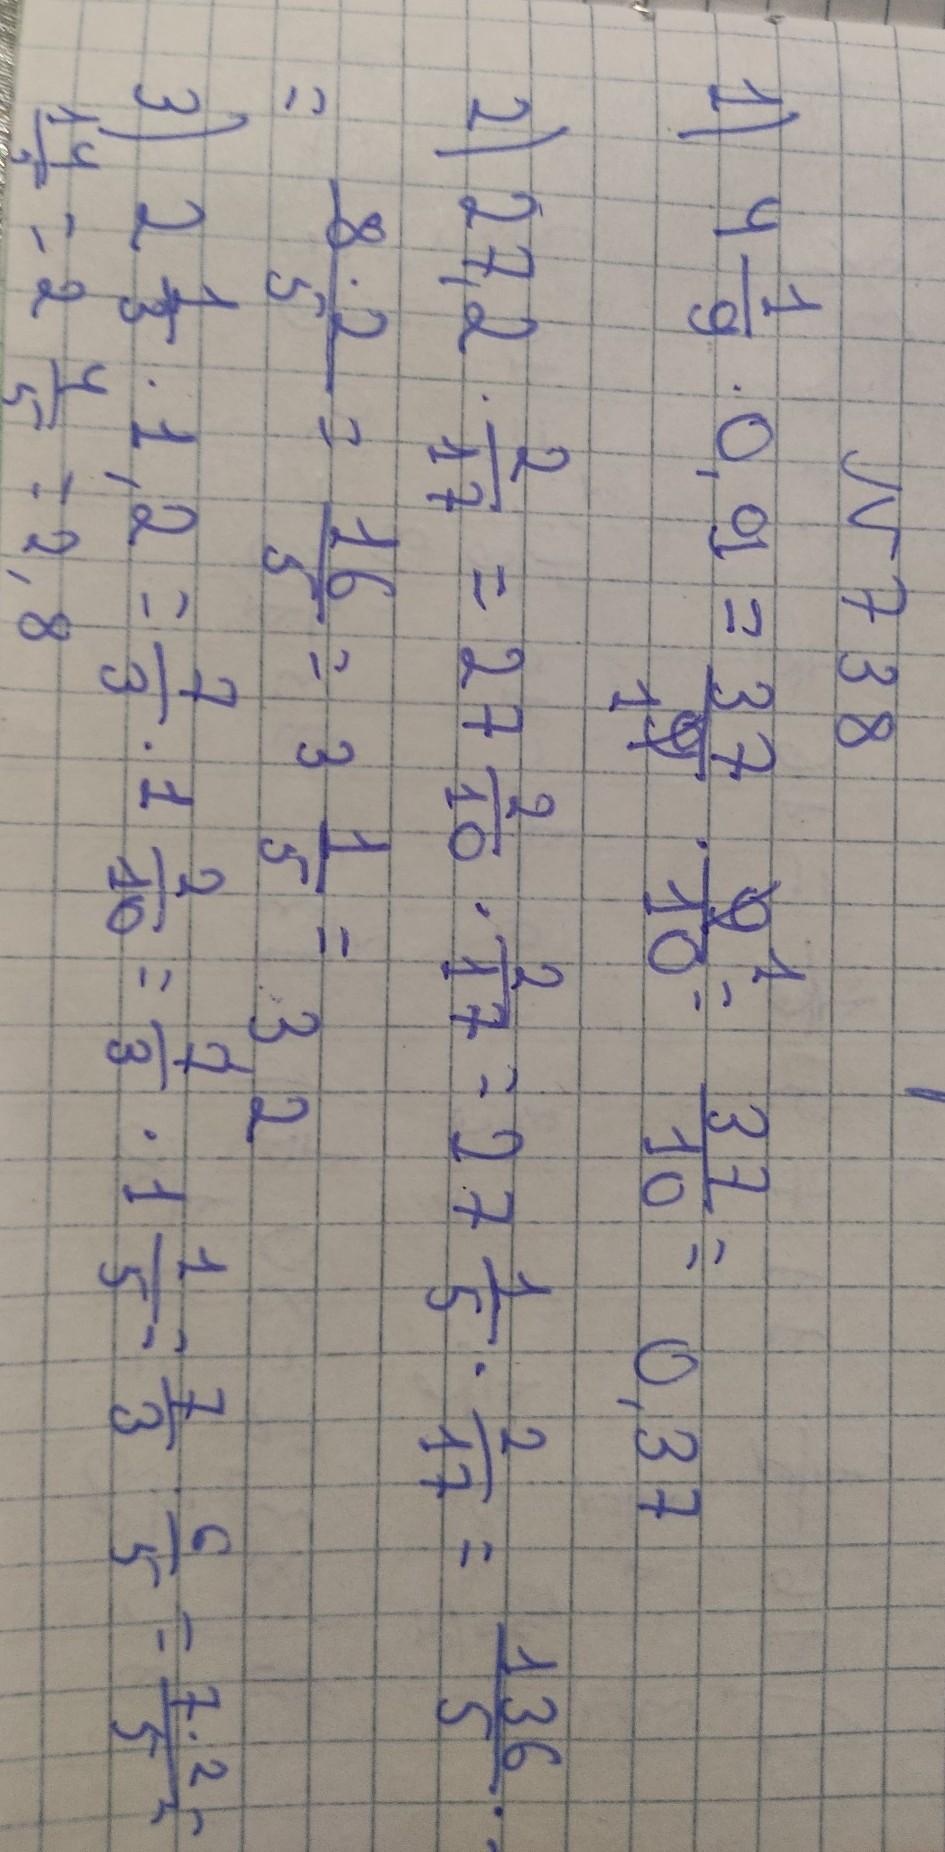 N 738
1) 4 1/9 · 0,91 = 37/9 1 · 9/10 1 = 37/10 = 0,37
2) 27,2 · 2/17 = 27 2/10 · 2/17 = 27 1/5 · 2/17 = 136/5 ·
= 8·2/5 = 16/5 = 3 1/5 = 3 2
3) 2 1/3 · 1,2 = 7/3 · 1 2/10 = 7/3 · 1 1/5 = 7/3 6/5 = 7·2/5 =
14/5 = 2 4/5 = 2,8